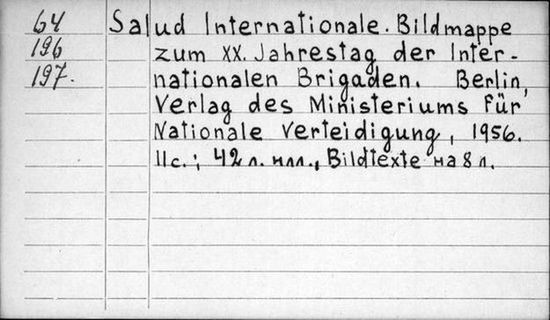 64
196
197.
Salud Internationale. Bildmappe
zum XX. Jahrestag der Inter-
nationalen Brigaden. Berlin,
Verlag des Ministeriums für
Nationale Verteidigung, 1956.
11с.; 42 л. илл., Bildtexte на 8 л.